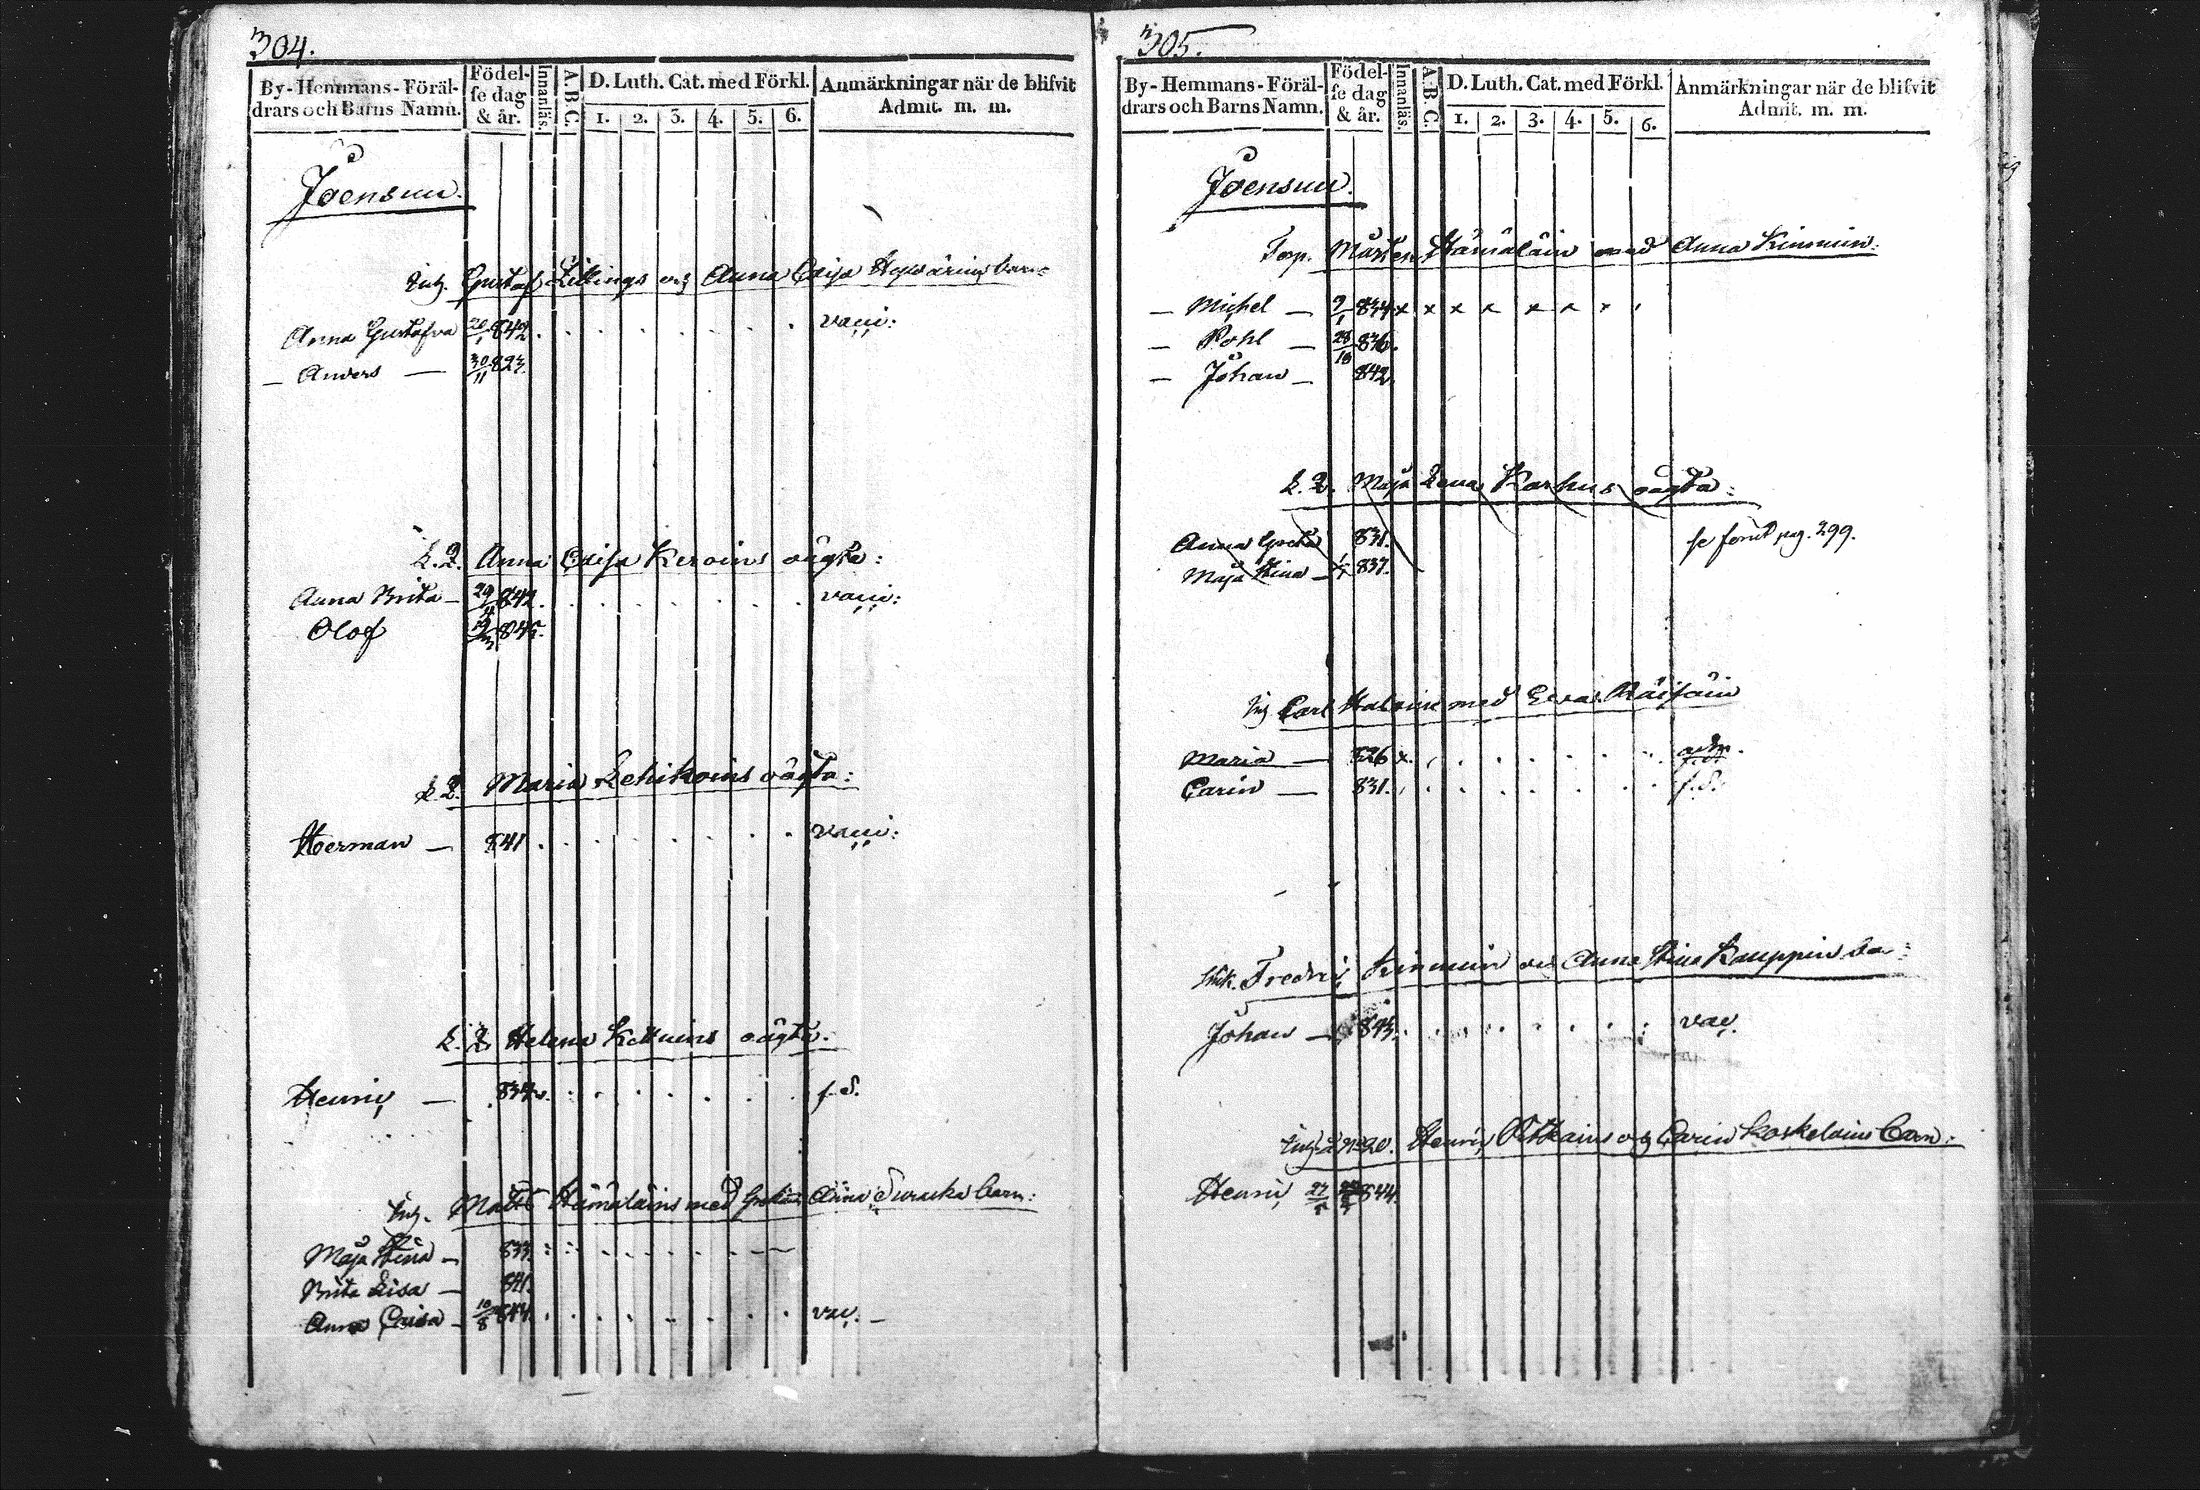 304.
By-Hemmans-Föräl-
drars och Barns Namn.
Födel-
se dag
& år.
Innanläs.
A.B.C.
D. Luth. Cat. med Förkl.
1. 2. 3. 4. 5. 6.
Anmärkningar när de blifvit
Admit. m. m.
Joensuu.
Gustaf och Anna Caisa barn:
Anna Gustafva 842. vacci:
— Anders — 30/11
L. Q. Anna Caisa oägta:
Anna Brita — 29/4 842. vacci:
Olof 845.
L. Q. Maria Lehikoins oägta:
Herman — 841. vacci:
L. Q. Helena oägta:
Henric — 834. f. S.
Matts Hämäläins med Anna Turacka barn:
Maja Stina — 833.
Brita Lisa — 841.
Anna Caisa — 10/8 844. vac. —
305.
By-Hemmans-Föräl-
drars och Barns Namn.
Födel-
se dag
& år.
Innanläs.
A.B.C.
D. Luth. Cat. med Förkl.
1. 2. 3. 4. 5. 6.
Anmärkningar när de blifvit
Admit. m. m.
Joensuu.
Torp. Mårten Hämäläin med Anna Kinnuin:
— Michel — 9/1 834. x x x x x x x
— Pohl — 28/10 836.
— Johan — 842.
L. Q. Maja Lena Karhus oägta:
Anna Greta 831. se förut pag. 299.
Maja Stina — 837.
Carl med Eva Räisäin
Maria — 826 x. adm.
Carin — 831. f. S.
Fredric Kinnuin och Anna Stina Kauppin ba:
Johan — vac.
No 20. Henric och Carin Koskeloins barn:
Henric 844.